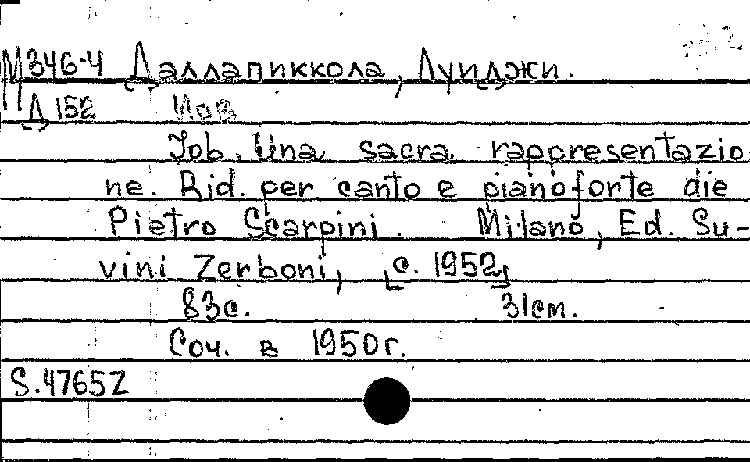 М346-4 Даллапиккола, Луиджи.
Д 152 Иов
Job. Una sacra rappresentazio
ne. Rid. per canto e pianoforte die
Pietro Scarpini. Milano, Ed. Su-
vini Zerboni, [c. 1952]
83с. 31см.
Соч. в 1950г.
S.47652